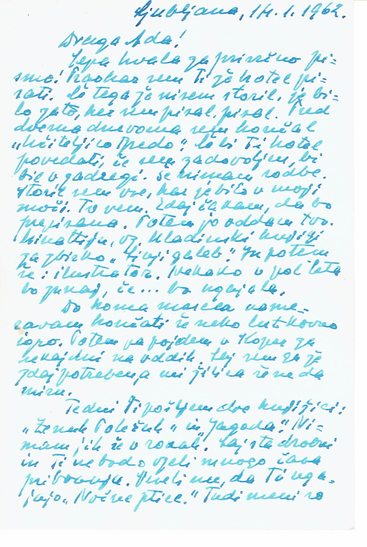 Ljubljana, 14. 1. 1962.
Draga Ada!
Lepa hvala za prisrčno pi-
smo! Preobrat sem Ti že hotel pi-
sati. Če tega že nisem storil, je bi-
lo zato, ker sem pisal, pisal. Pred
dvema dnevoma sem končal
„Učiteljico Bredo“. Če bi Ti hotel
povedati, če sem zadovoljen, bi
bil v zadregi. Se nimam rad be.
Storil sem vse, kar je bilo v moji
moči. To vem. Zdaj čakam, da bo
prepisana. Potem jo oddam tvo.
Mladinski knjigi
za zbirko „Sinji galeb“. In potem
še: ilustrator. Nekako v pol leta
bo zunaj, če... bo ugajala.
Do konca meseca name-
ravam končati še neko lutkovno
igro. Potem pa pojdem v Koper za
nekaj dni na oddih. Saj sem ga že
zdaj potreben, a mi žilica še ne da
miru.
Te dni Ti pošljem dve knjižici:
„Ženin Poležuh“ in „Jagoda“. Ni-
mam jih še v rokah. Saj sta drobni
in Ti ne bodo vzeli mnogo časa
pri branju. Veseli me, da Ti uga-
jajo „Nočne ptice.“ Tudi meni so